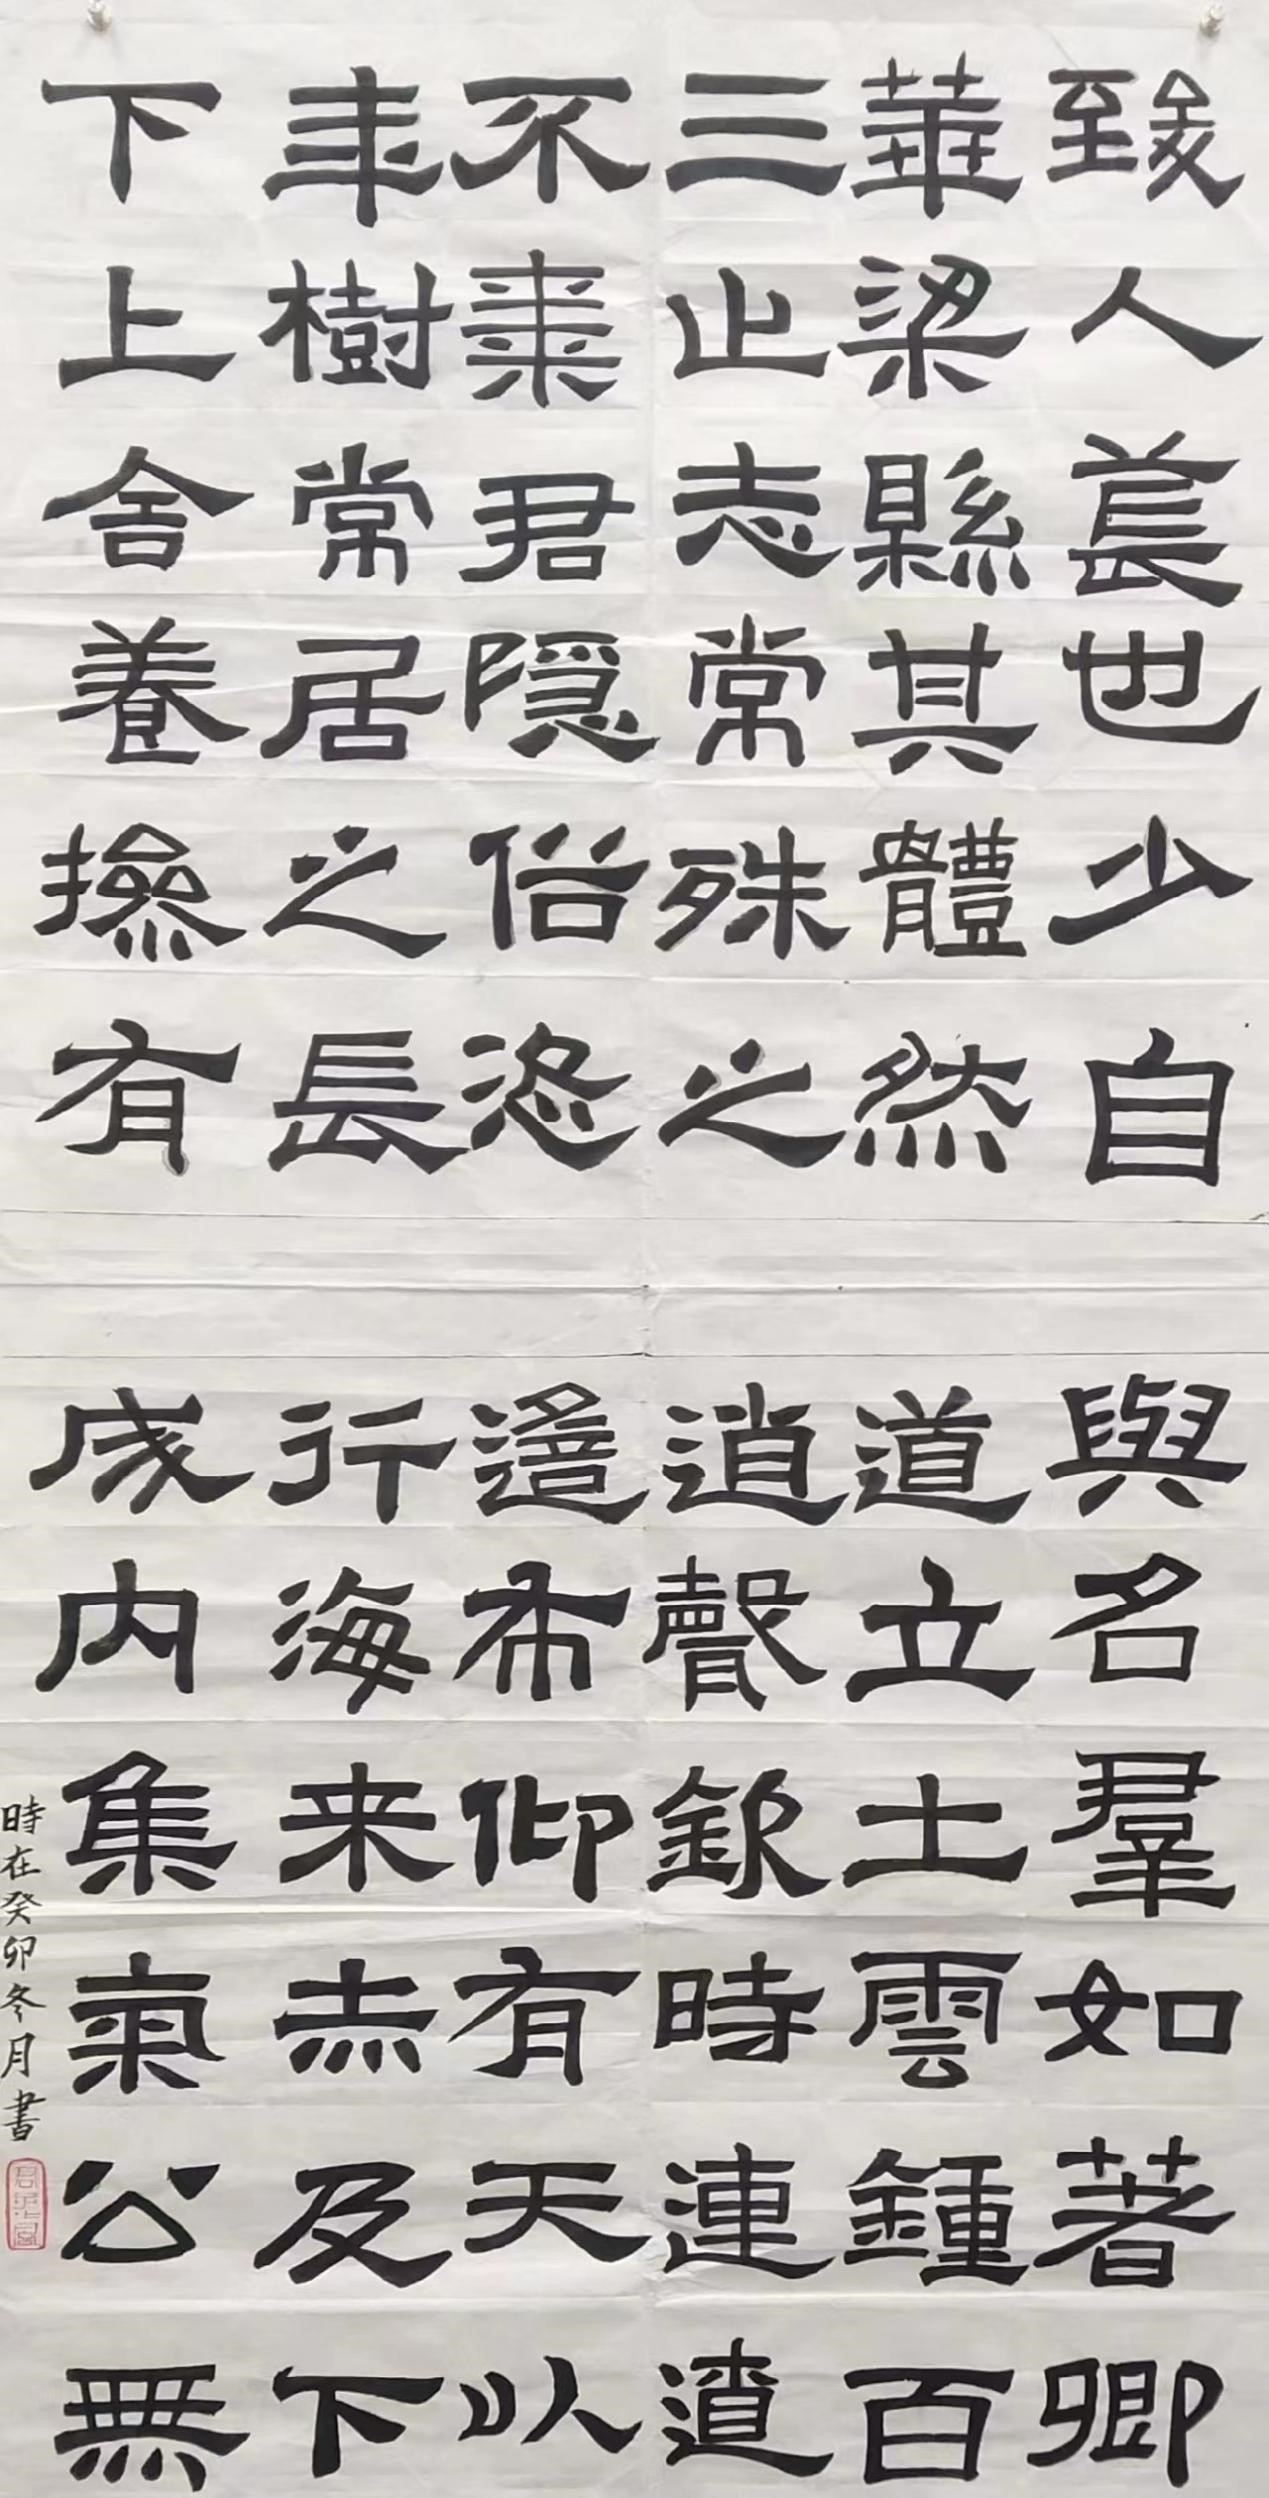 致人萇也少自與名羣如著卿
華梁縣其體然道立土雲鍾百
三止志常殊之逍聲欽時連遀
不棗君隱俗恣遙布仰有天以
年樹常居之長行海来赤及下
下上舍養操有成内集氣公無
時在癸卯冬月書